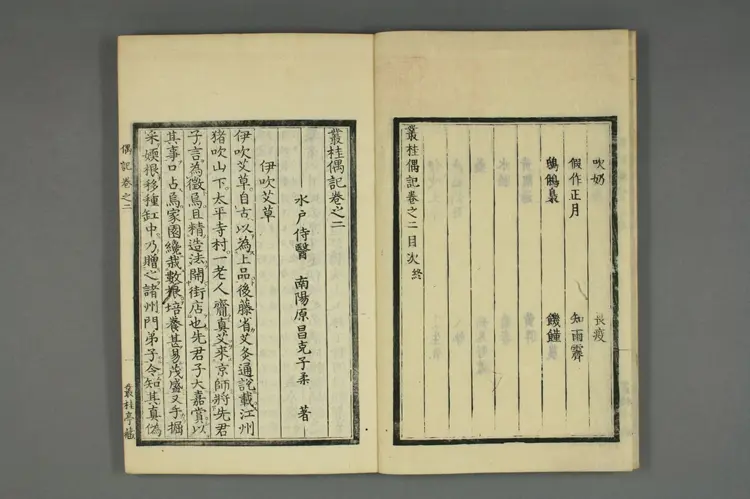 吹奶 長疫
假作正月 知雨霽
鵂鶹梟 饑饉
叢桂偶記卷之二目次終
叢桂偶記卷之二
水户侍醫 南陽原昌克子柔 著
伊吹艾草
伊吹艾草自古以為上品後藤省艾灸通說載江州
猪吹山下太平寺村一老人齎真艾来京師將先君
子言為徵焉且精造法開街店也先君子大嘉賞以
其事口占焉家園纔栽數根培養甚易茂盛又手掘
采嫩根移種缸中乃贈之諸州門弟子令知其真偽
偶記卷之二
叢桂亭藏